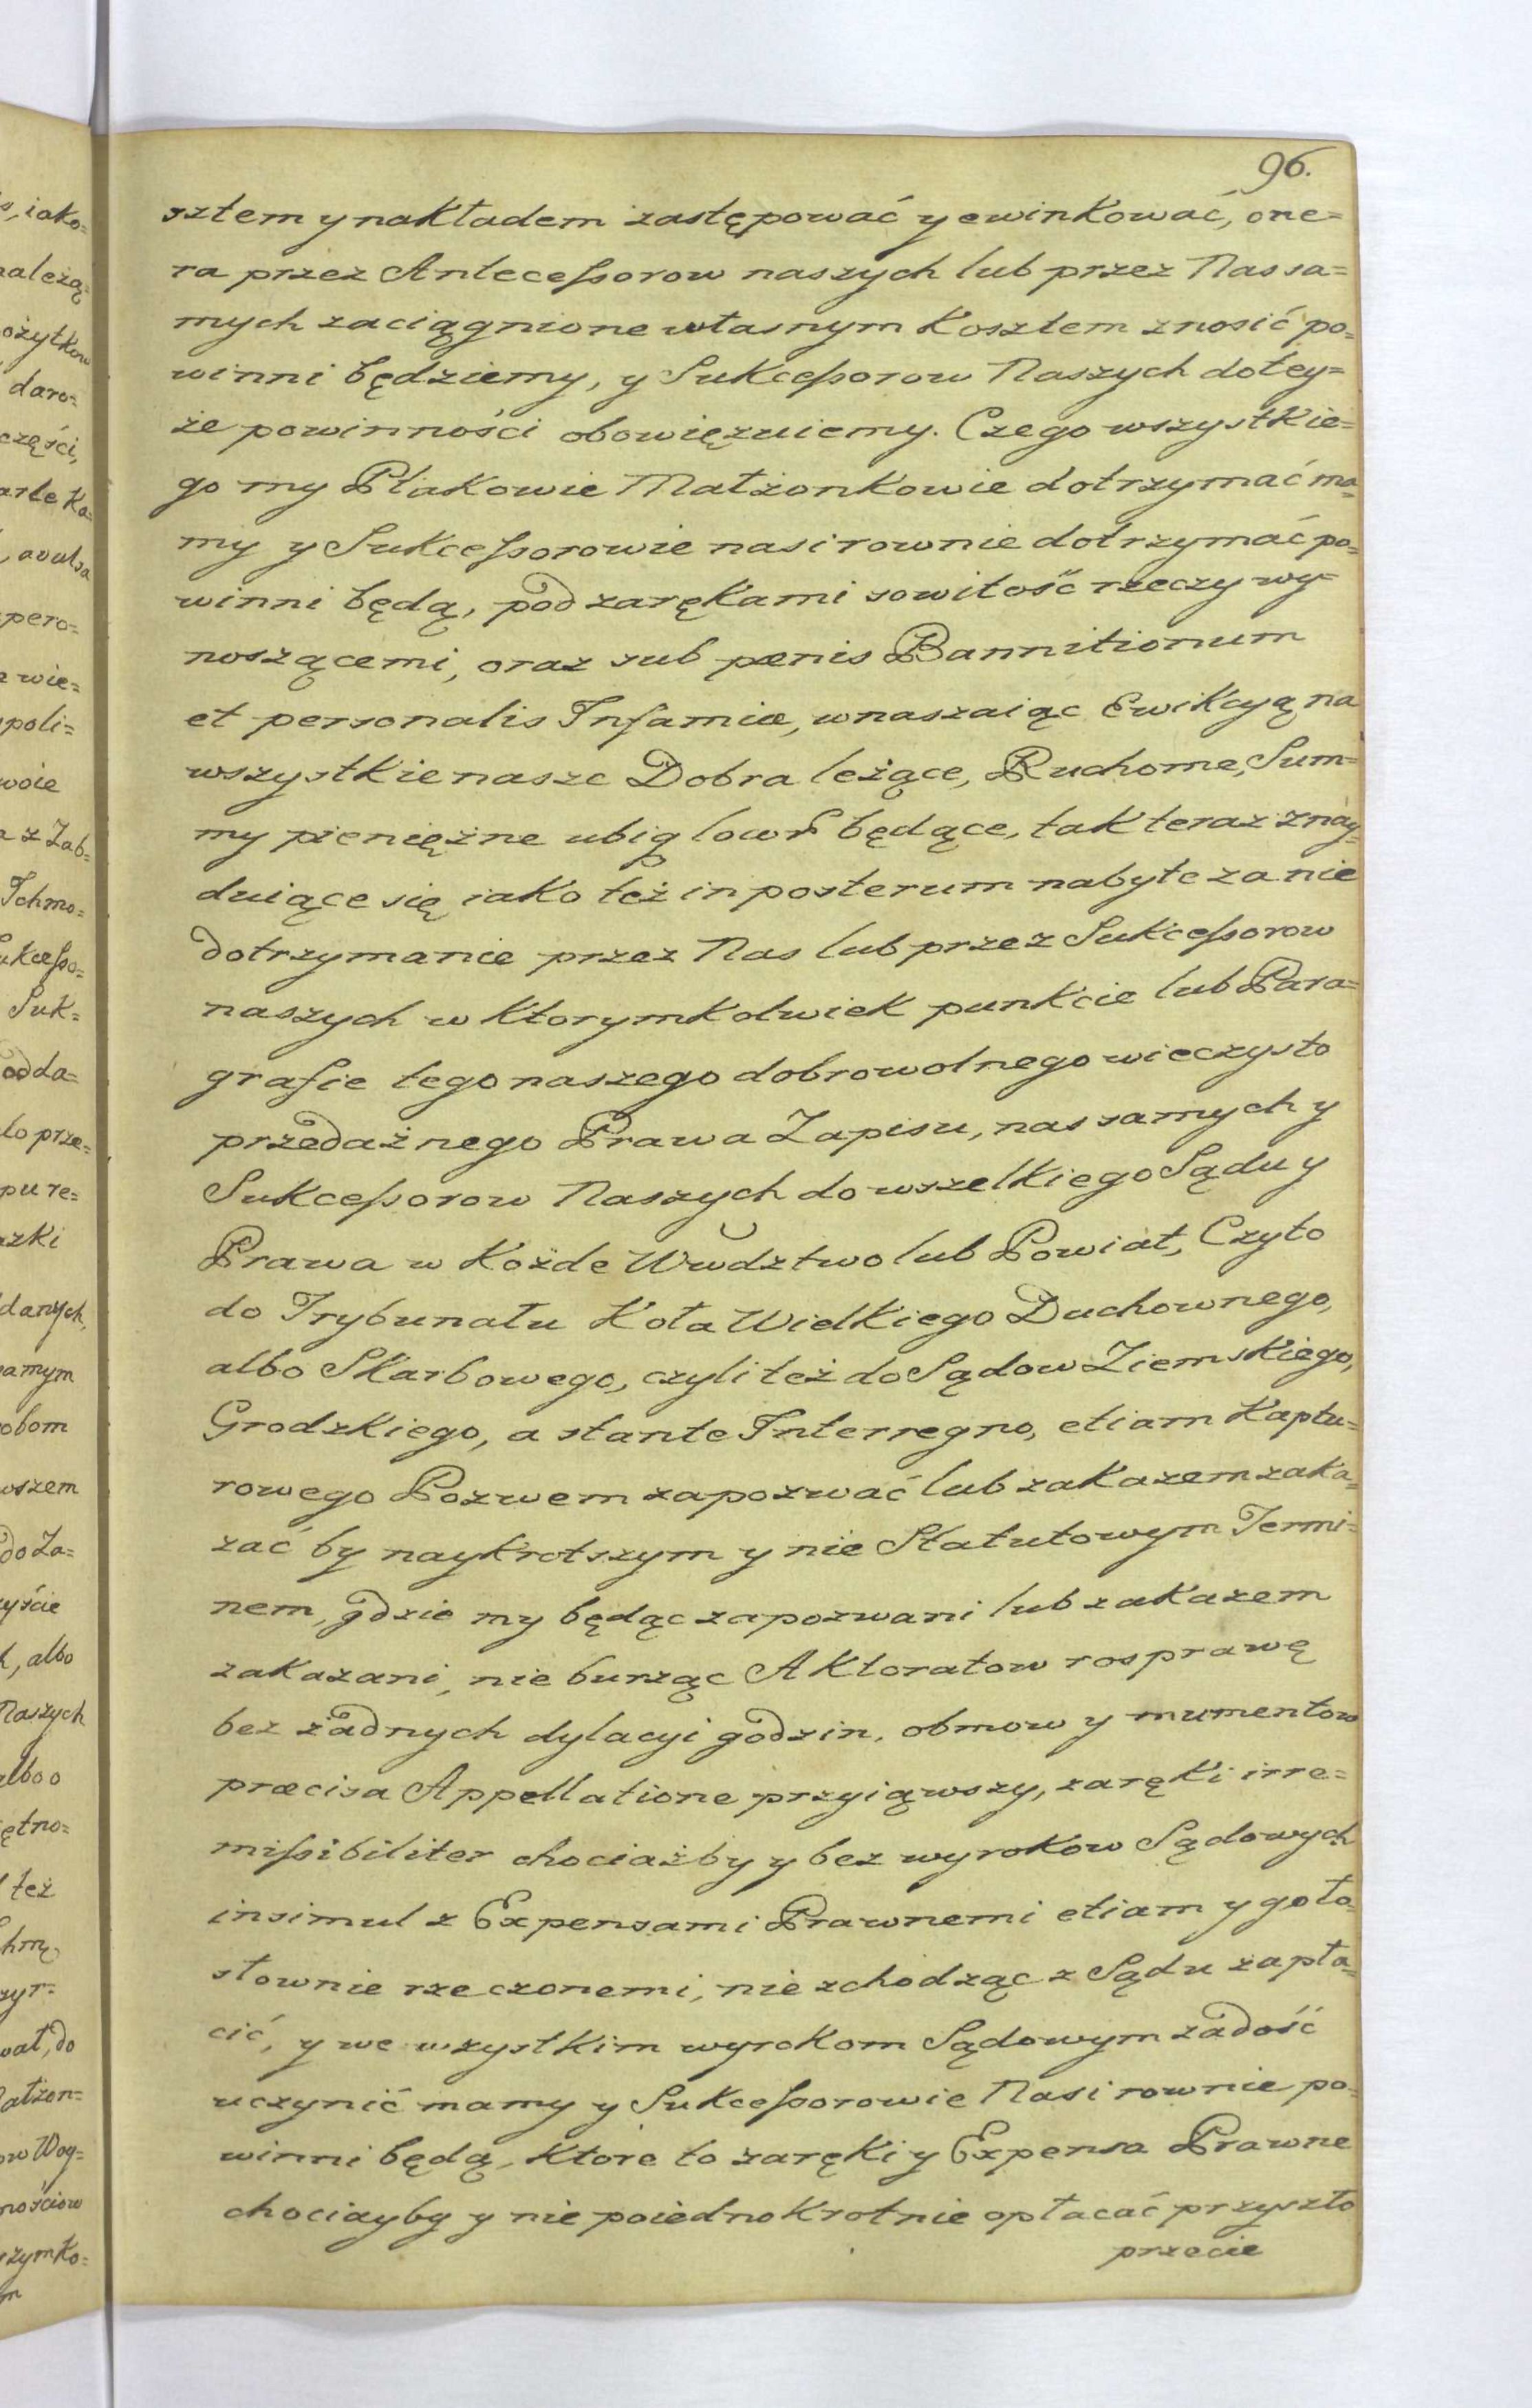 96.
sztem y nakładem zastępować y ewinkować, one=
ra przez Antecessorow naszych lub przez Nas sa=
mych zaciągnione własnym Kosztem znosić po=
winni będziemy, y Sukcessorow Naszych do tey=
że powinności obowięzuiemy. Czego wszystkie=
go my Ptakowie Małżonkowie dotrzymać ma=
my y Sukcessorowie nasi rownie dotrzymać po=
winni będą, pod zarękami sowitość rzeczy wy=
noszącemi, oraz sub pœnis Bannitionum
et personalis Infamiæ, wnaszaiąc Ewikcyą na
wszystkie nasze Dobra leżące, Ruchome, Sum=
my pieniężne ubiq lowr będące, tak teraz znay=
duiące się iako też in posterum nabyte za nie
dotrzymanie przez Nas lub przez Sukcessorow
naszych w Ktorymkolwiek punkcie lub Para=
grafie tego naszego dobrowolnego wieczysto
przedażnego Prawa Zapisu, nas samych y
Sukcessorow Naszych do wszelkiego Sądu y
Prawa w Kożde Wwdztwo lub Powiat, Czyto
do Trybunału Koła Wielkiego Duchownego,
albo Skarbowego, czyli też do Sądow Ziemskiego,
Grodzkiego, a stante Interregno, etiam Kaptu=
rowego Pozwem zapozwać lub zakazem zaka=
zać by naykrotszym y nie Statutowym Termi=
nem, gdzie my będąc zapozwani lub zakazem
zakazani, nie burząc Aktoratow rosprawę
bez żadnych dylacyi godzin, obmow y mumentow
præcisa Appellatione przyiąwszy, zaręki irre=
missibiliter chociażby y bez wyrokow Sądowych
insimul z Expensami Prawnemi etiam y goło=
słownie rzeczonemi, nie zchodząc z Sądu zapła=
cić, y we wszystkim wyrokom Sądowym zadość
uczynić mamy y Sukcessorowie Nasi rownie po=
winni będą, Ktore to zaręki y Expensa Prawne
chociayby y nie poiednokrotnie opłacać przyszło
przecie